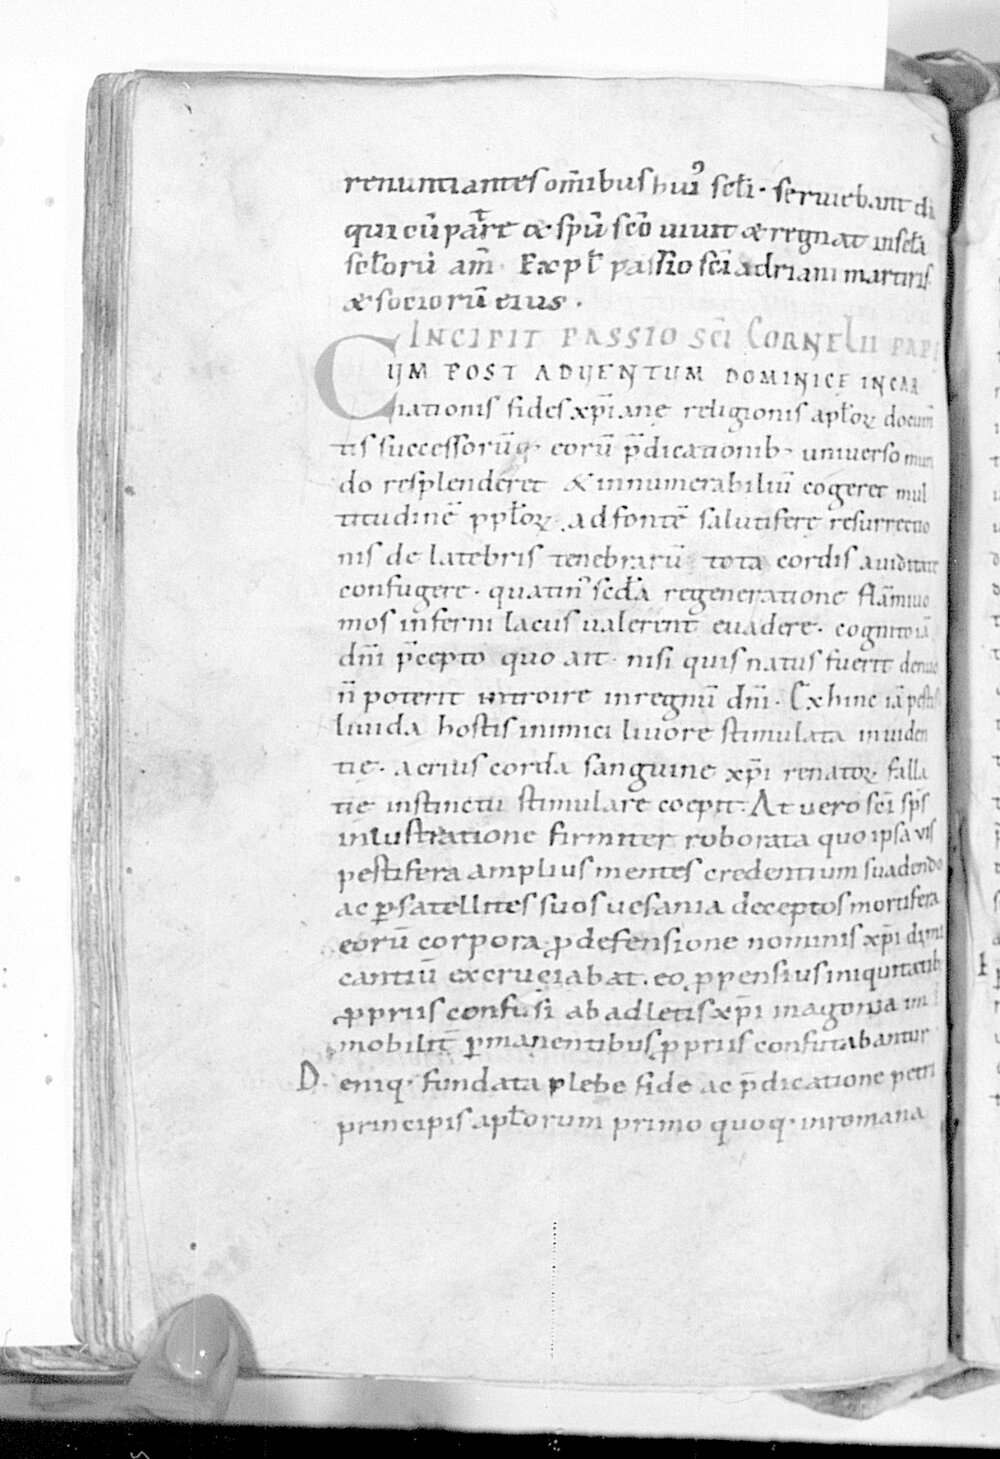 renuntiantes om̅ibus huiꝰ sełi · seruiebant di
qui cu̅ patre & sp̅u sc̅o uiuit & regnat in sełа
sełoru̅ am̅ · Expł passio sc̅i adriani martiris
& socioru̅ eius ·
INCIPIT PASSIO SC̅I CORNELII PAPE
CUM POST ADUENTUM DOMINICE INCAR
nationis fides xp̅iane religionis apłoꝝ docum̅
tis successoru̅q· eoru̅ p̅dicationib· uniuerso mun
do resplenderet & innumerabiliu̅ cogeret mul
titudine̅ ppłoꝝ · ad fonte̅ salutifere resurrectio
nis de latebris tenebraru̅ tota cordis auiditate
confugere · quatinꝰ secda regeneratione fla̅miuo
mos inferni lacus ualerent euadere · cognito ia̅
dn̅i p̅cepto quo ait · nisi quis natus fuerit denuo
n̅ poterit introire in regnu̅ dn̅i · Exhinc ia̅ pestis
liuida hostis inimici liuore stimulata inuiden
tie · acrius corda sanguine xp̅i renatoꝝ falla
tie instinctu stimulare coepit · At uero sc̅i sp̅s
inlustratione firmiter roborata quo ipsa uis
pestifera amplius mentes credentium suadendo
ac ꝑ satellites suos uesania deceptos mortifera
eoru̅ corpora ꝓ defensione nominis xp̅i dimi
cantiu̅ excruciabat · eo ꝓpensius iniquitatib;
ꝓpriis confusi ab adletis xp̅i in agonia im
mobilit̅ ꝑmanentibus ꝓpriis confutabantur
Deniq· fundata plebe fide ac p̅dicatione petri
principis apłorum primo quoq· in romana